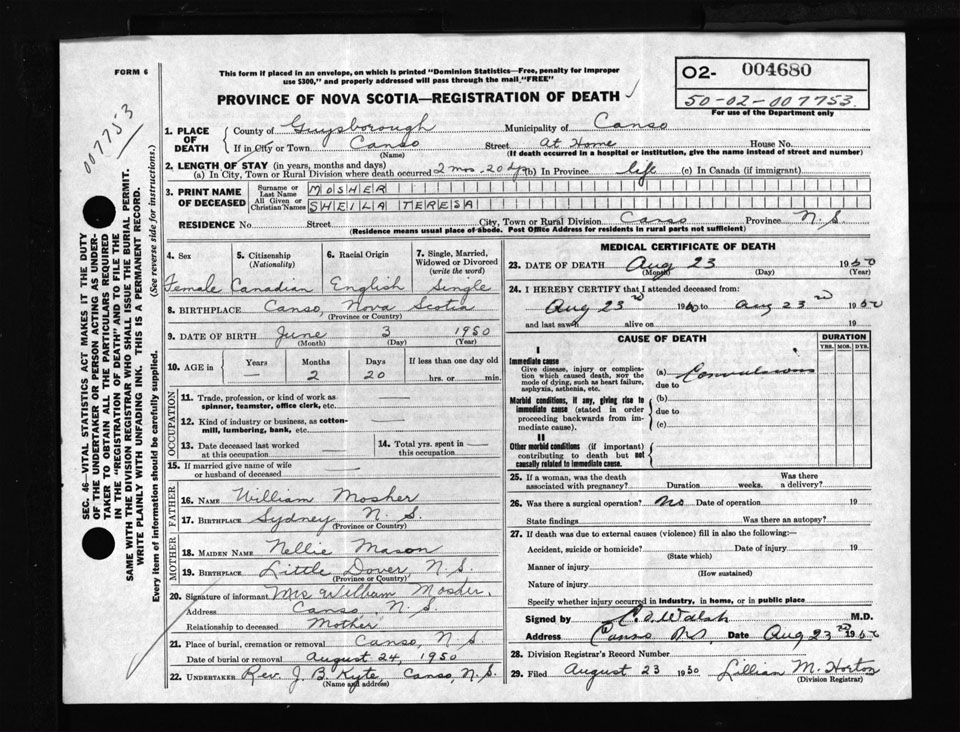 FORM 6
This form if placed in an envelope, on which is printed "Dominion Statistics—Free, penalty for improper
use $300," and properly addressed will pass through the mail "FREE"
PROVINCE OF NOVA SCOTIA—REGISTRATION OF DEATH
O2- 004680
50-02-007753
For use of the Department only
007753
SEC. 46—VITAL STATISTICS ACT MAKES IT THE DUTY
OF THE UNDERTAKER OR PERSON ACTING AS UNDER-
TAKER TO OBTAIN ALL THE PARTICULARS REQUIRED
IN THE "REGISTRATION OF DEATH" AND TO FILE THE
SAME WITH THE DIVISION REGISTRAR WHO SHALL ISSUE THE BURIAL PERMIT.
WRITE PLAINLY WITH UNFADING INK. THIS IS A PERMANENT RECORD.
Every item of information should be carefully supplied. (See reverse side for instructions.)
1. PLACE OF DEATH County of Guysborough Municipality of Canso
If in City or Town Canso Street At Home House No.
(Name) (If death occurred in a hospital or institution, give the name instead of street and number)
2. LENGTH OF STAY (in years, months and days)
(a) In City, Town or Rural Division where death occurred 2 mos. 20 (b) In Province life (c) In Canada (if immigrant)
3. PRINT NAME OF DECEASED Surname or Last Name MOSHER
All Given or Christian Names SHEILA TERESA
RESIDENCE No. Street City, Town or Rural Division Canso Province N.S.
(Residence means usual place of abode. Post Office Address for residents in rural parts not sufficient)
4. Sex 5. Citizenship (Nationality) 6. Racial Origin 7. Single, Married, Widowed or Divorced (write the word)
Female Canadian English Single
8. BIRTHPLACE Canso Nova Scotia
(Province or Country)
9. DATE OF BIRTH June 3 1950
(Month) (Day) (Year)
10. AGE in Years Months Days If less than one day old
— 2 20 hrs. or min.
OCCUPATION
11. Trade, profession, or kind of work as
spinner, teamster, office clerk, etc.
12. Kind of industry or business, as cotton-
mill, lumbering, bank, etc.
13. Date deceased last worked
at this occupation
14. Total yrs. spent in
this occupation
15. If married give name of wife
or husband of deceased
FATHER
16. NAME William Mosher
17. BIRTHPLACE Sydney N.S.
(Province or Country)
MOTHER
18. MAIDEN NAME Nellie Mason
19. BIRTHPLACE Little Dover, N.S.
(Province or Country)
20. Signature of informant Mrs William Mosher.
Address Canso, N.S.
Relationship to deceased Mother
21. Place of burial, cremation or removal Canso, N.S
Date of burial or removal August 24, 1950
22. UNDERTAKER Rev. J. B. Kyte, Canso, N.S.
(Name and address)
MEDICAL CERTIFICATE OF DEATH
23. DATE OF DEATH Aug 23 1950
(Month) (Day) (Year)
24. I HEREBY CERTIFY that I attended deceased from:
Aug 23rd 1950 to Aug 23rd 1950
and last saw alive on 19
CAUSE OF DEATH DURATION
YRS. MOS. DYS.
I
Immediate cause
Give disease, injury or complica-
tion which caused death, NOT the
mode of dying, such as heart failure,
asphyxia, asthenia, etc.
(a) Convulsions
due to
Morbid conditions, if any, giving rise to
immediate cause (stated in order
proceeding backwards from im-
mediate cause).
(b)
due to
(c)
II
Other morbid conditions (if important)
contributing to death but not
causally related to immediate cause.
25. If a woman, was the death
associated with pregnancy? Duration weeks. Was there a delivery?
26. Was there a surgical operation? no Date of operation 19
State findings Was there an autopsy?
27. If death was due to external causes (violence) fill in also the following:—
Accident, suicide or homicide? Date of injury 19
(State which)
Manner of injury
(How sustained)
Nature of injury
Specify whether injury occurred in industry, in home, or in public place
Signed by Walsh M.D.
Address Canso N.S. Date Aug 23rd 1950
28. Division Registrar's Record Number
29. Filed August 23 1950 Lillian M. Horton
(Division Registrar)